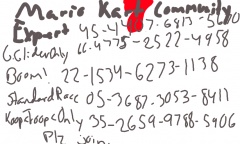 Mario Community
Expert 45-
G.Glider Only 66-4775-2522-4958
Boom! 22-1534-6273-1138
Standard Race 05-3687-3053-8411
Koop Troops Only 35-2659-9788-5906
Plz join